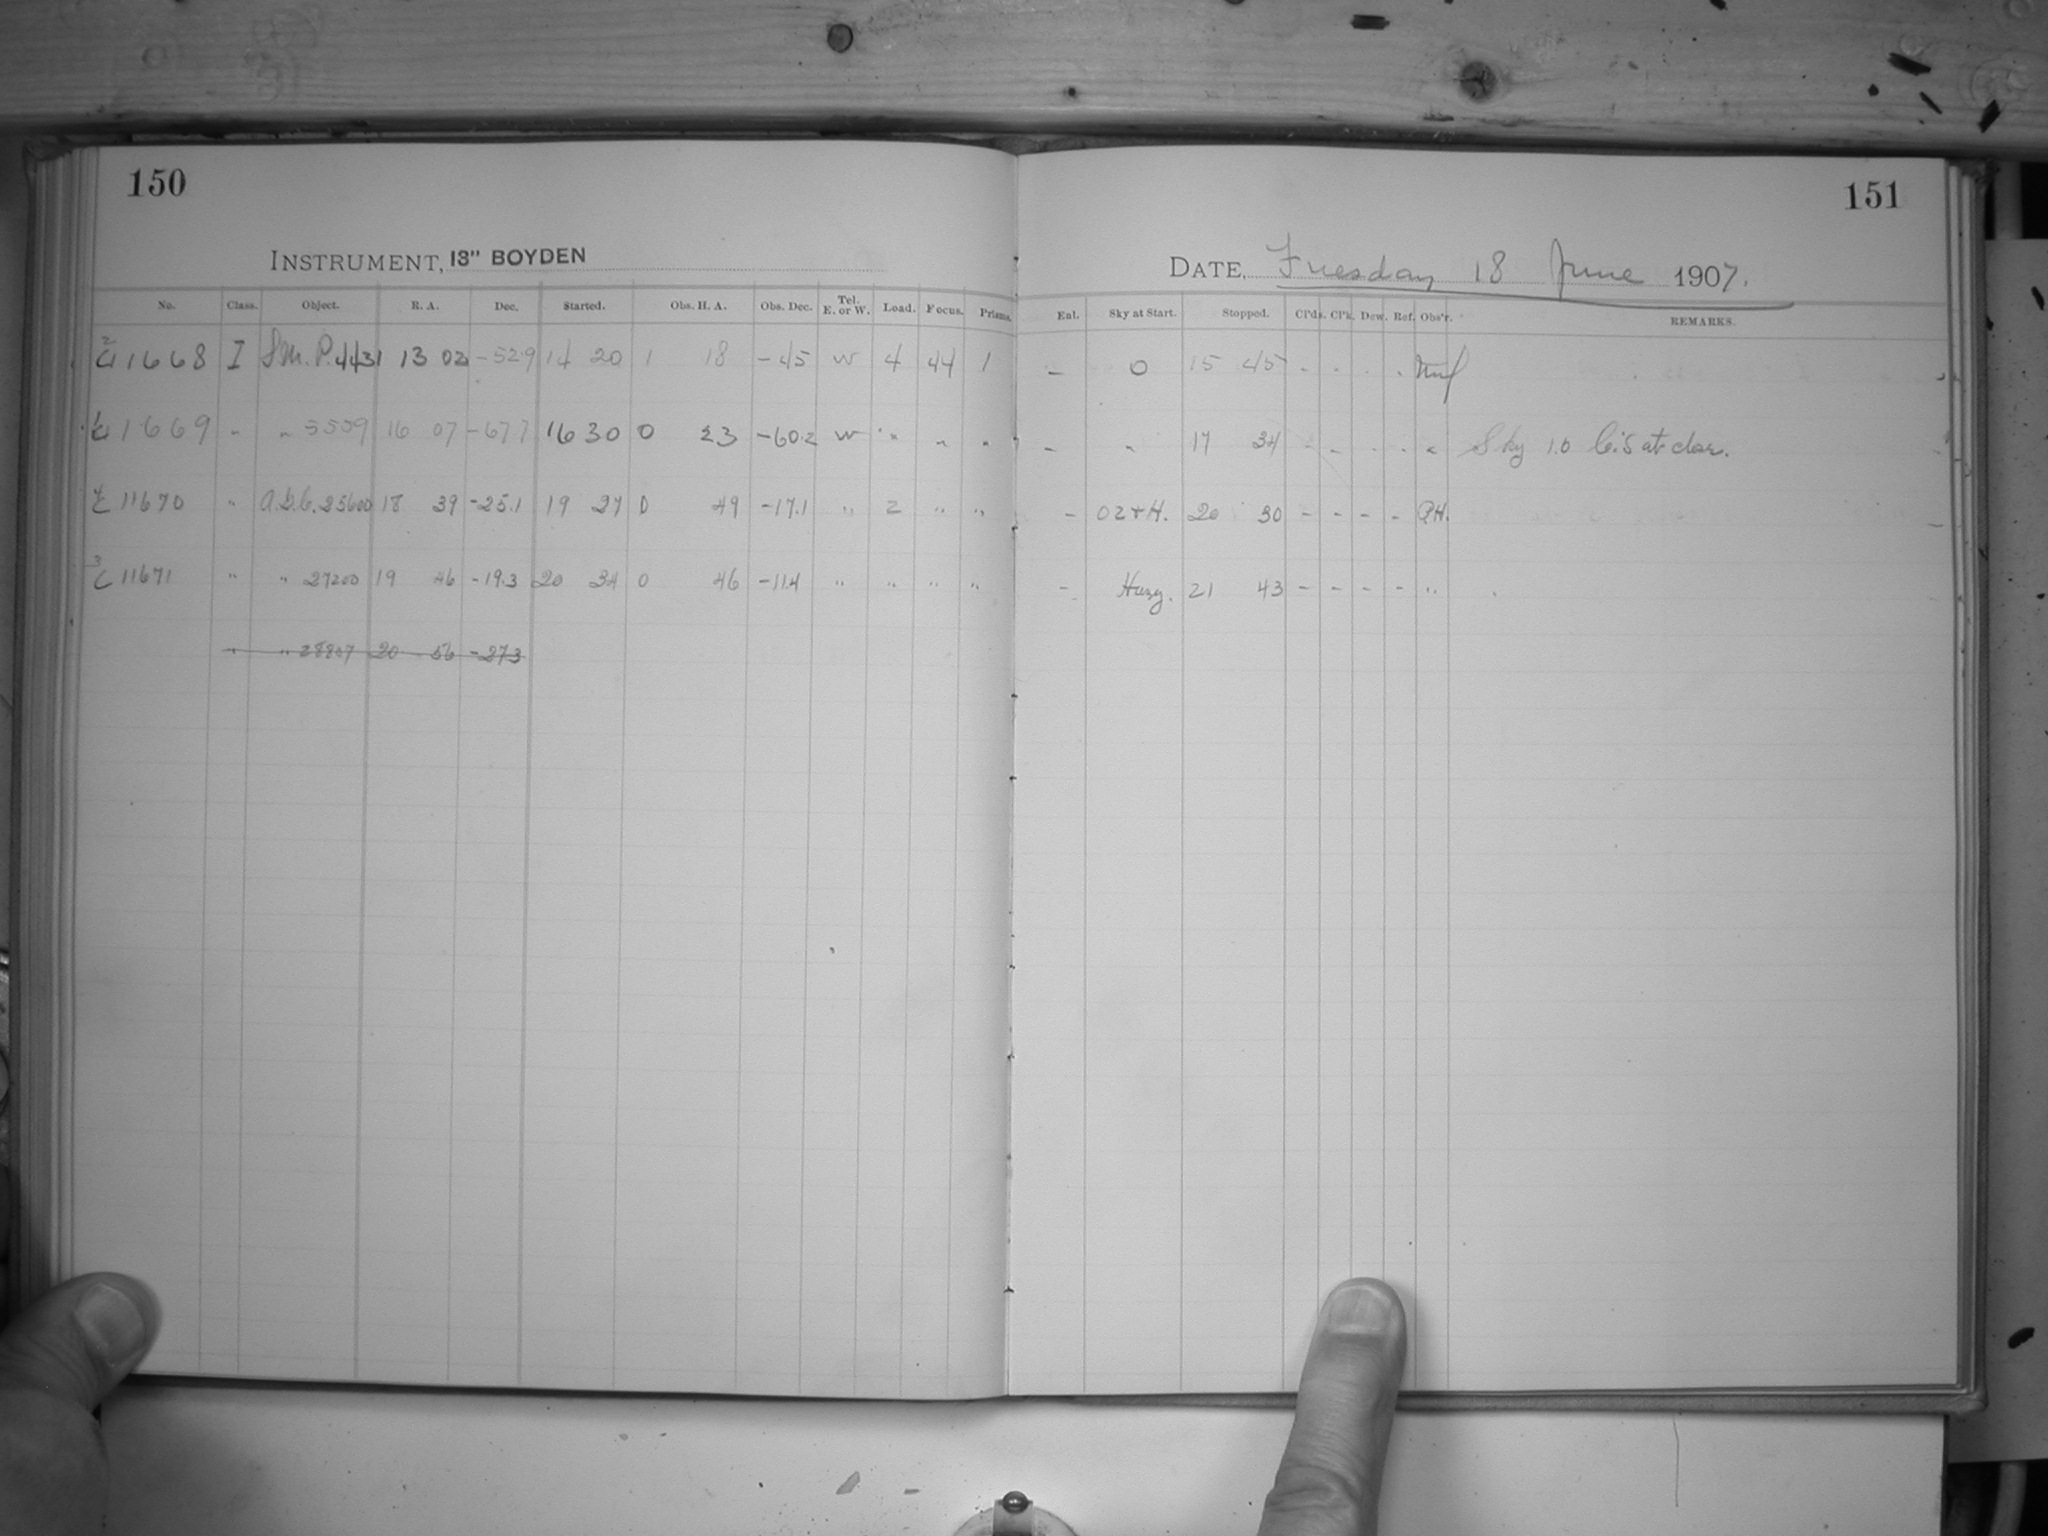 150
151
INSTRUMENT, 13" BOYDEN
DATE, Tuesday 18 June 1907.
No. Class. Object. R. A. Dec. Started. Obs. H. A. Obs. Dec. Tel. E. or W. Load. Focus. Prisms. Enl. Sky at Start. Stopped. Cl'ds. Cl'k. Dew. Ref. Obs'r. REMARKS.
11668 I S.M.P. 4431 13 02 -52.9 14 20 1 18 -45 W 4 44 1 - 0 15 45 - - - -
11669 " " 5559 16 07 -67.7 16 30 0 23 -60.2 W " " " - " 17 34 - - - - " Sky 1.0
11670 " A.G.C. 25600 18 39 -25.1 19 27 0 49 -17.1 " 2 " " - 20 30 - - - -
11671 " " 27200 19 46 -19.3 20 34 0 46 -11.4 " " " " - Hazy. 21 43 - - - - "
" " 28807 20 56 -27.3